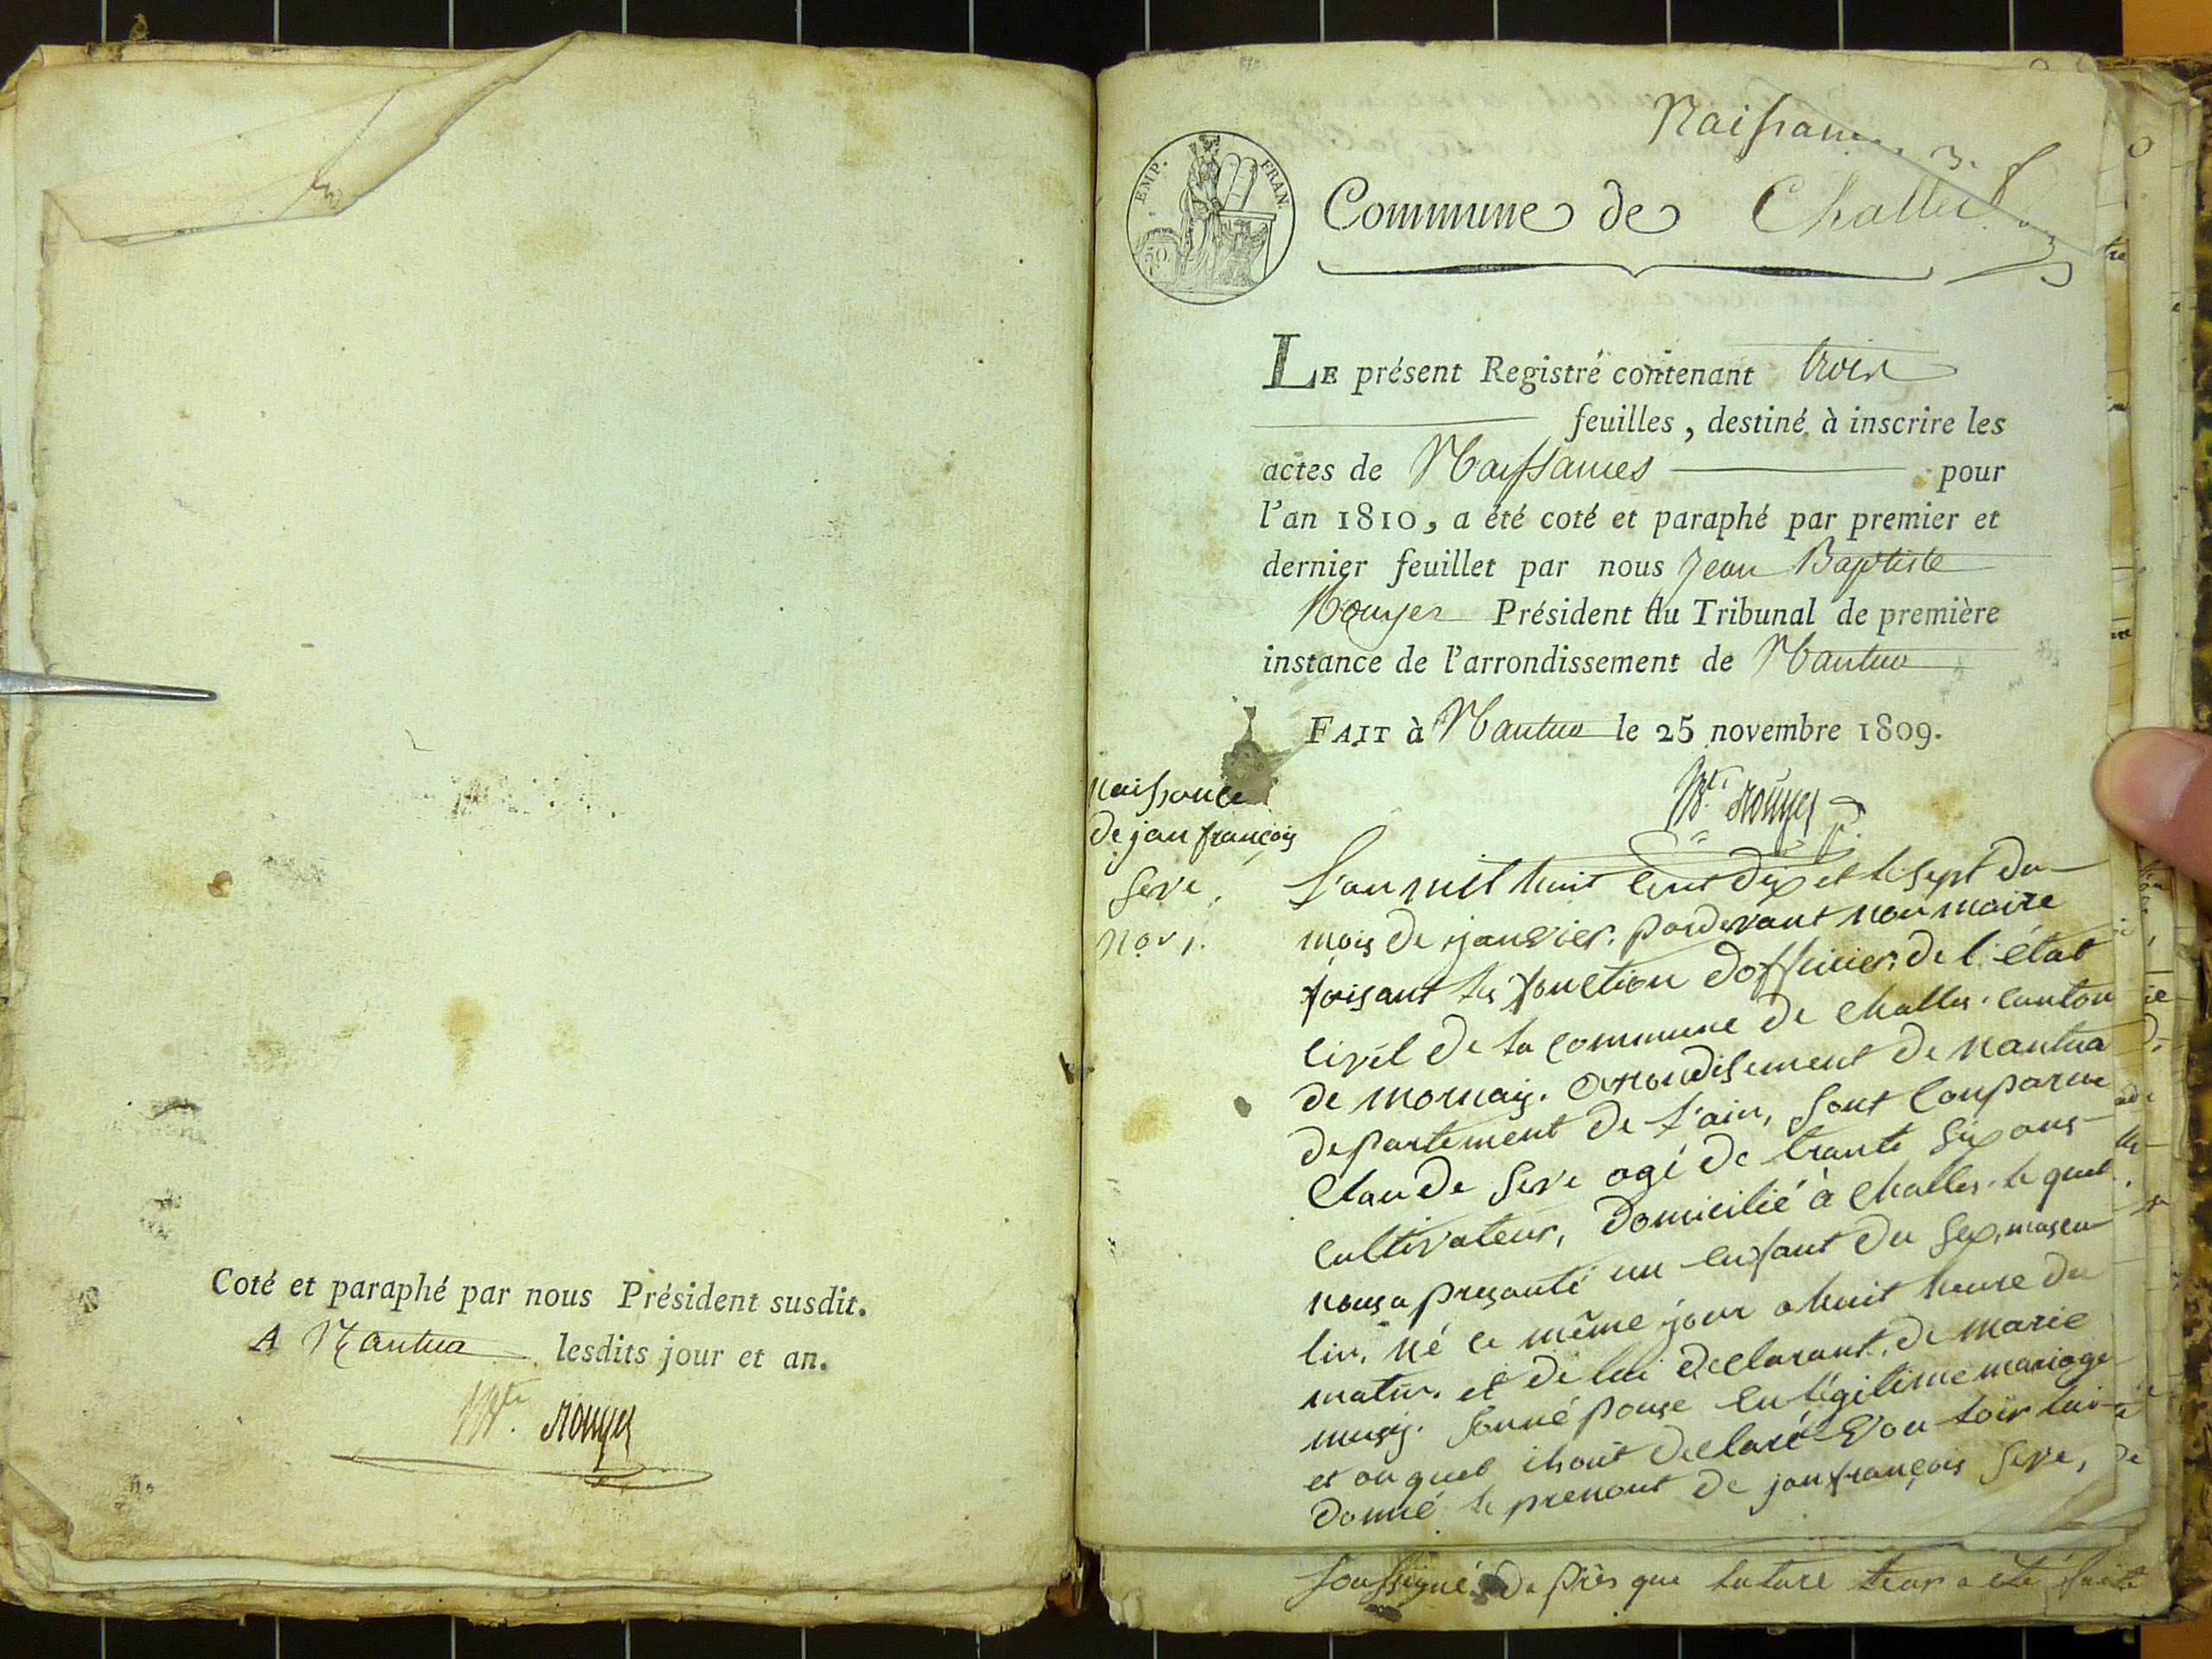 Coté et paraphé par nous Président susdit.
A Nantua lesdits jour et an.
Bte. Rouyer
Naissances 3.
EMP. FRAN.
50.
Commune de Challes
LE présent Registre contenant trois
feuilles, destiné à inscrire les
actes de Naissances pour
l'an 1810, a été coté et paraphé par premier et
dernier feuillet par nous Jean Baptiste
Rouyer Président du Tribunal de première
instance de l'arrondissement de Nantua
FAIT à Nantua le 25 novembre 1809.
Bte. Rouyer
P.
naissance
de jan françois
Seve,
No. 1.
L'an mil huit cent dix et le sept du
mois de janvier. pardevant nou maire
faisant les fonction dofficier de l'état
civil de la commune de Challes. canton
de mornay. arrondisement de nantua
departement de l'ain, sont comparue
Claude Seve agé de trante six ans
cultivateur, domicilié à Challes. le quel
nous a presanté un enfant du sex, mascu
lin, né ce même jour a huit heure du
matin. et de lui declarant. de marie
musy. son népouse en légitime mariage
et au quel ihont declaré vou loir lui
donné le prenont de jan françois Seve,
soussigné de près que lature leur a été faite